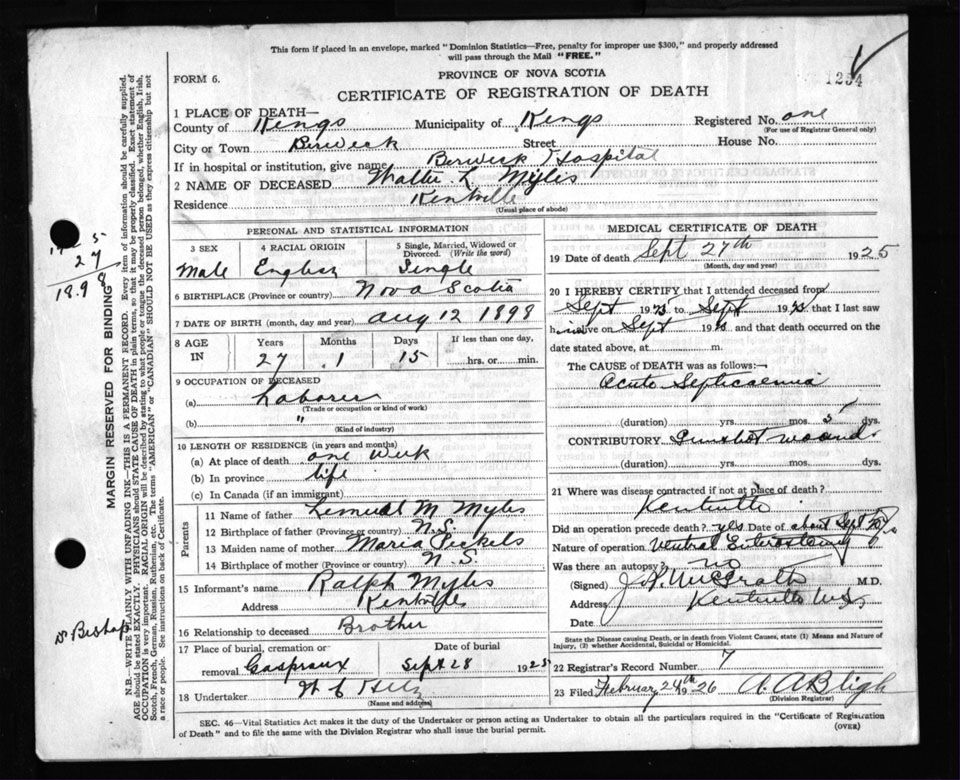 This form if placed in an envelope, marked "Dominion Statistics—Free, penalty for improper use $300," and properly addressed
will pass through the Mail "FREE."
1254
FORM 6.
PROVINCE OF NOVA SCOTIA
CERTIFICATE OF REGISTRATION OF DEATH
1 PLACE OF DEATH—
County of Kings Municipality of Kings Registered No. one
(For use of Registrar General only)
City or Town Berwick Street House No.
If in hospital or institution, give name Berwick Hospital
2 NAME OF DECEASED Walter L Myles
Residence Kentville
(Usual place of abode)
PERSONAL AND STATISTICAL INFORMATION
3 SEX 4 RACIAL ORIGIN 5 Single, Married, Widowed or Divorced. (Write the word)
Male English Single
6 BIRTHPLACE (Province or country) Nova Scotia
7 DATE OF BIRTH (month, day and year) Aug 12 1898
8 AGE IN Years Months Days If less than one day,
27 1 15 hrs. or min.
9 OCCUPATION OF DECEASED
(a) Laborer
(Trade or occupation or kind of work)
(b) "
(Kind of industry)
10 LENGTH OF RESIDENCE (in years and months)
(a) At place of death one week
(b) In province life
(c) In Canada (if an immigrant)
Parents
11 Name of father Lemuel M Myles
12 Birthplace of father (Province or country) N.S.
13 Maiden name of mother Maria
14 Birthplace of mother (Province or country) N.S.
15 Informant's name Ralph Myles
Address Kentville
16 Relationship to deceased Brother
17 Place of burial, cremation or removal Date of burial
Gaspraux Sept 28 1925
18 Undertaker
(Name and address)
MEDICAL CERTIFICATE OF DEATH
19 Date of death Sept 27th 1925
(Month, day and year)
20 I HEREBY CERTIFY that I attended deceased from
Sept 1925 to Sept 1925 that I last saw
him alive on Sept 1925 and that death occurred on the
date stated above, at m.
The CAUSE of DEATH was as follows:—
Acute Septicaemia
(duration) yrs. mos. 5 dys.
CONTRIBUTORY Gunshot wound
(duration) yrs. mos. dys.
21 Where was disease contracted if not at place of death?
Kentville
Did an operation precede death? yes Date of about Sept
Nature of operation Ventral Enterostomy
Was there an autopsy? no
(Signed) J.P. McGrath M.D.
Address Kentville N.S.
Date
State the Disease causing Death, or in death from Violent Causes, state (1) Means and Nature of
Injury, (2) whether Accidental, Suicidal or Homicidal.
22 Registrar's Record Number 7
23 Filed February 24th 1926 A. A Bligh
(Division Registrar)
SEC. 46—Vital Statistics Act makes it the duty of the Undertaker or person acting as Undertaker to obtain all the particulars required in the "Certificate of Registration
of Death" and to file the same with the Division Registrar who shall issue the burial permit.
(OVER)
27
1898
Dr Bishop
MARGIN RESERVED FOR BINDING
N.B.—WRITE PLAINLY WITH UNFADING INK—THIS IS A PERMANENT RECORD. Every item of information should be carefully supplied.
AGE should be stated EXACTLY. PHYSICIANS should STATE CAUSE OF DEATH in plain terms, so that it may be properly classified. Exact statement of
OCCUPATION is very important. RACIAL ORIGIN will be described by stating to what people or tongue the deceased person belonged, whether English, Irish,
Scotch, French, German, Russian, Ruthenian, etc. The terms "AMERICAN" or "CANADIAN" SHOULD NOT BE USED as they express citizenship but not
a race or people. See instructions on back of Certificate.